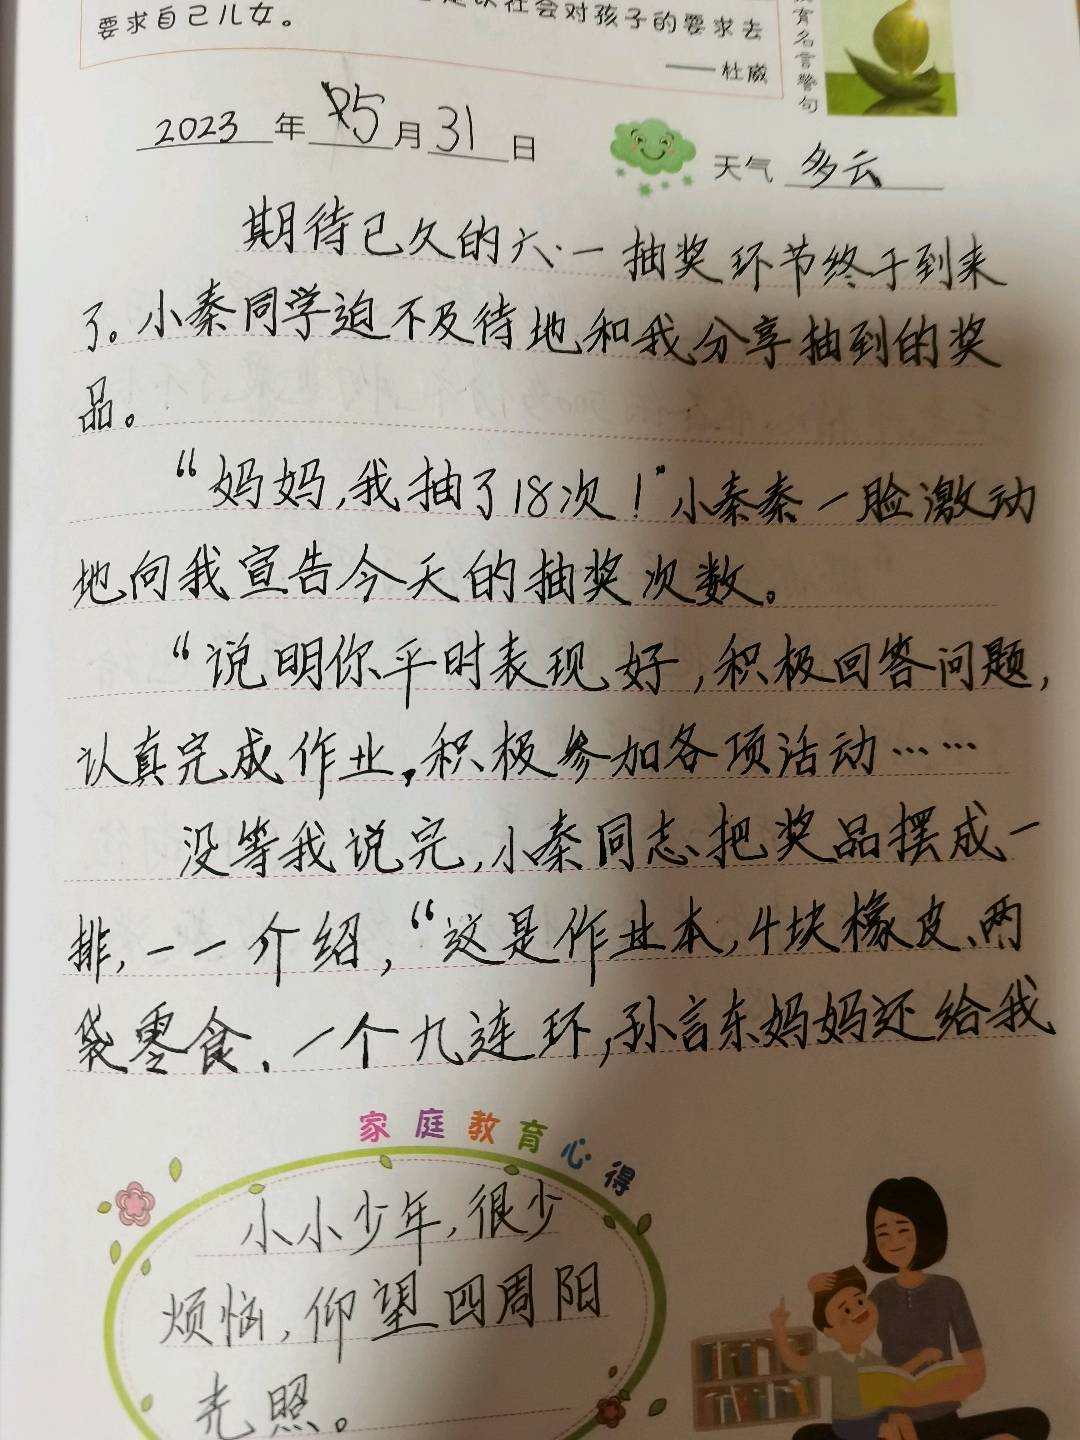 是以社会对孩子的要求去
要求自己儿女。
——杜威
育名言警句
2023年5月31日
天气 多云
期待已久的六·一抽奖环节终于到来
了。小秦同学迫不及待地和我分享抽到的奖
品。
“妈妈,我抽了18次!”小秦秦一脸激动
地向我宣告今天的抽奖次数。
“说明你平时表现好,积极回答问题,
认真完成作业,积极参加各项活动……
没等我说完,小秦同志把奖品摆成一
排,一一介绍,“这是作业本,4块橡皮、两
袋零食、一个九连环,孙言东妈妈还给我
家庭教育心得
小小少年,很少
烦恼,仰望四周阳
光照。